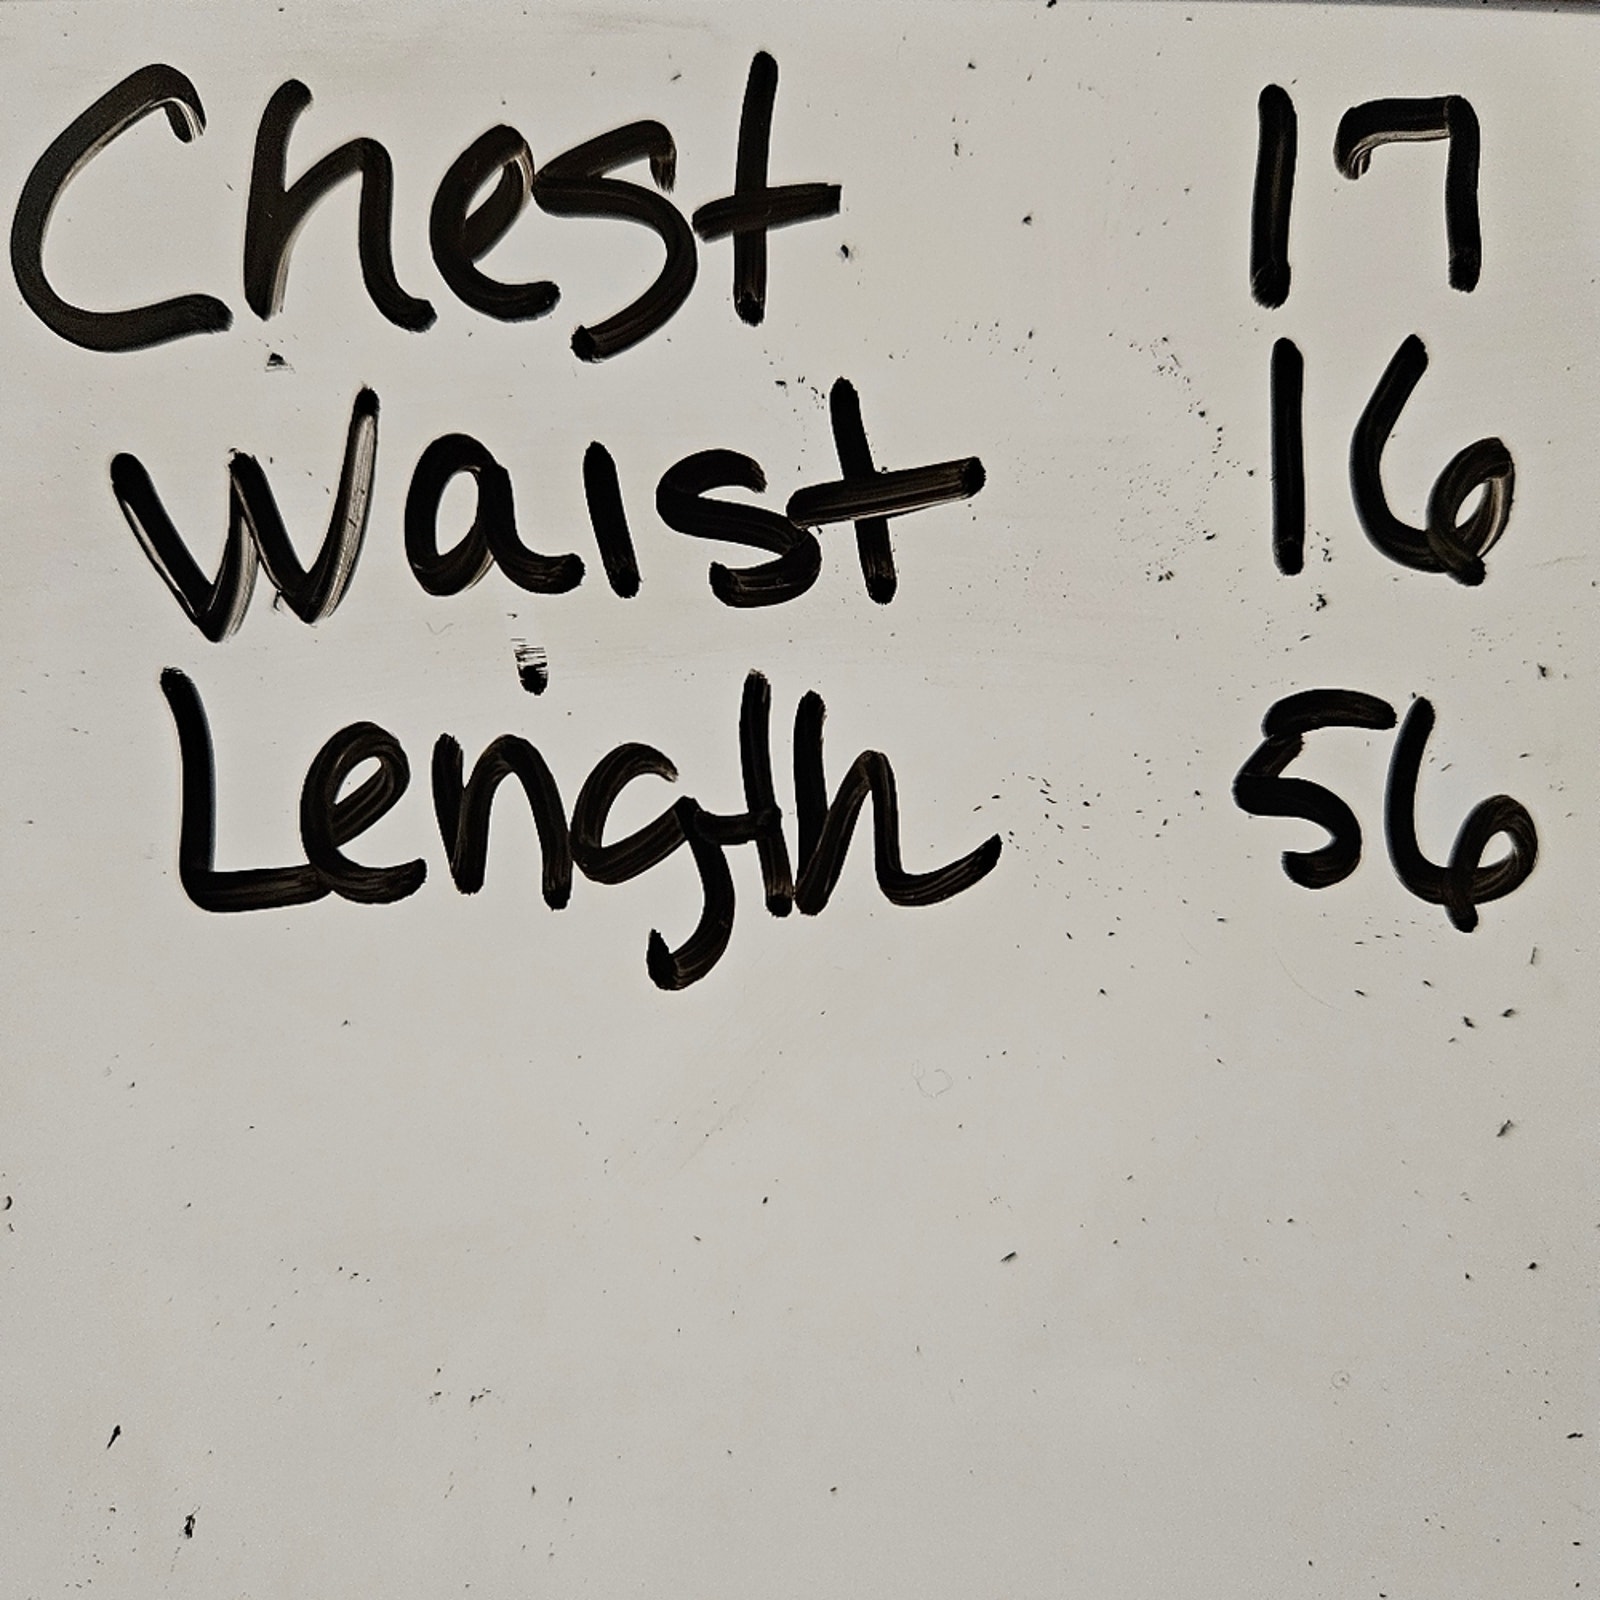 Chest 17
Waist 16
Length 56